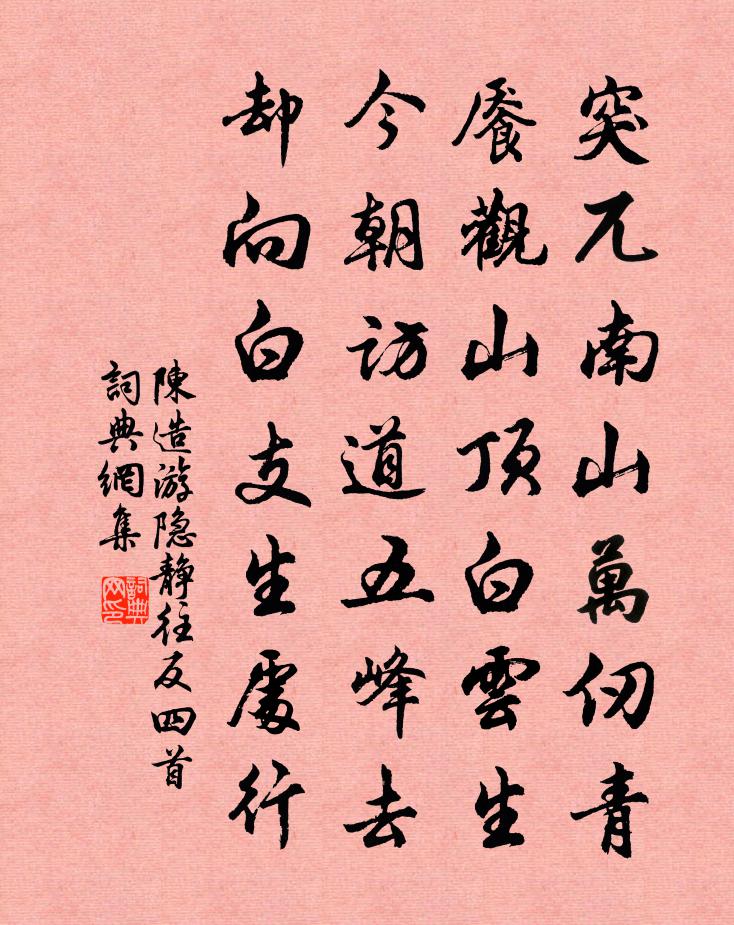 突兀南山萬仞青
饜觀山頂白雲生
今朝訪道五峰去
却向白支生處行
陳造游隐静往反四首
詞典網集
詞典网印